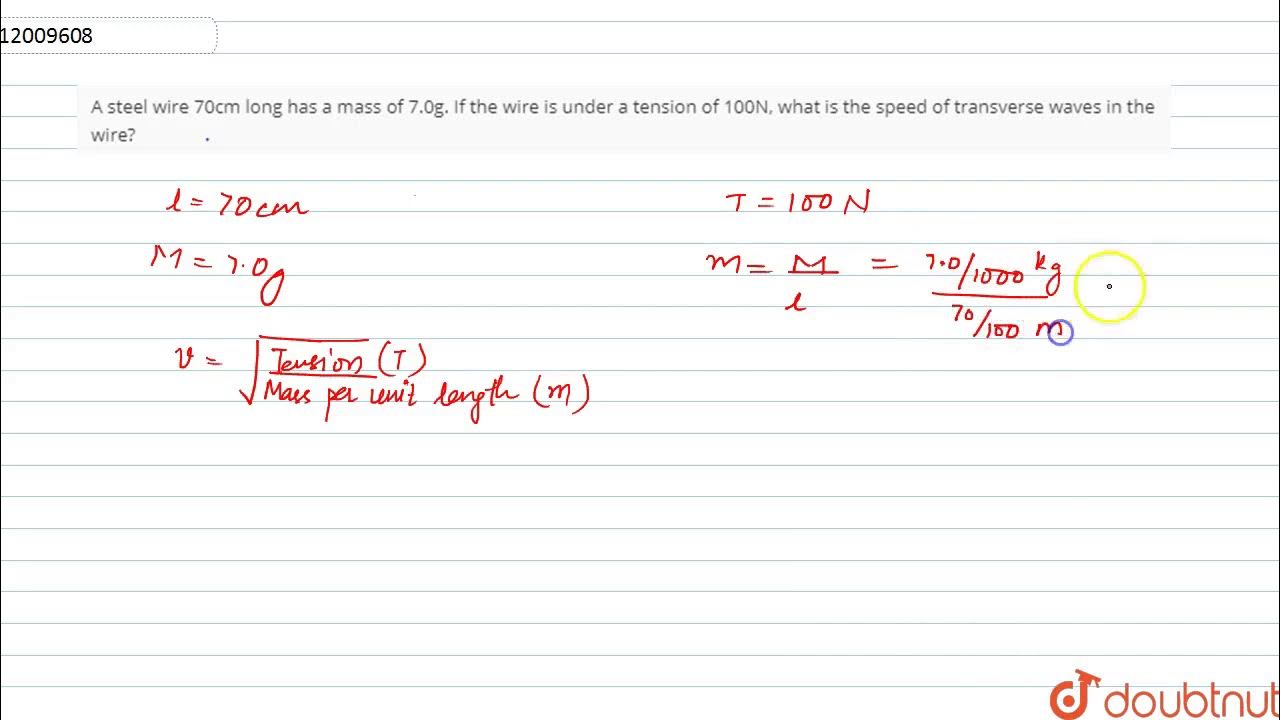 12009608
A steel wire 70cm long has a mass of 7.0g. If the wire is under a tension of 100N, what is the speed of transverse waves in the
wire?
l = 70 cm
T = 100 N
M = 7.0 g
m = M / l = 7.0/1000 kg / 70/100 m
v = √ Tension (T)
Mass per unit length (m)
doubtnut